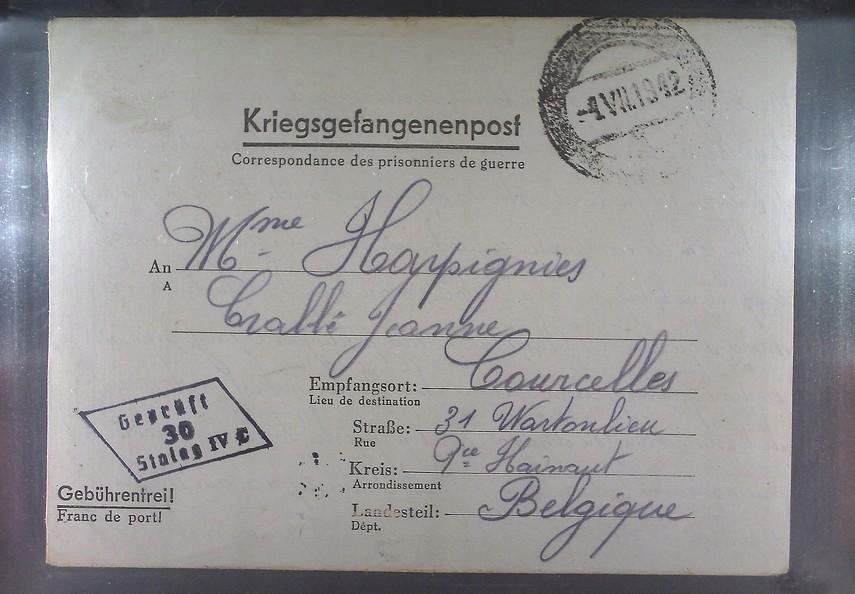 -4.VII.1942
Kriegsgefangenenpost
Correspondance des prisonniers de guerre
An Mme Harpignies
A
Jeanne
Empfangsort: Courcelles
Lieu de destination
Straße: 31 Wartonlieu
Rue
Kreis: Pce Hainaut
Arrondissement
Landesteil: Belgique
Dépt.
Geprüft
30
Stalag IV C
Gebührenfrei!
Franc de port!